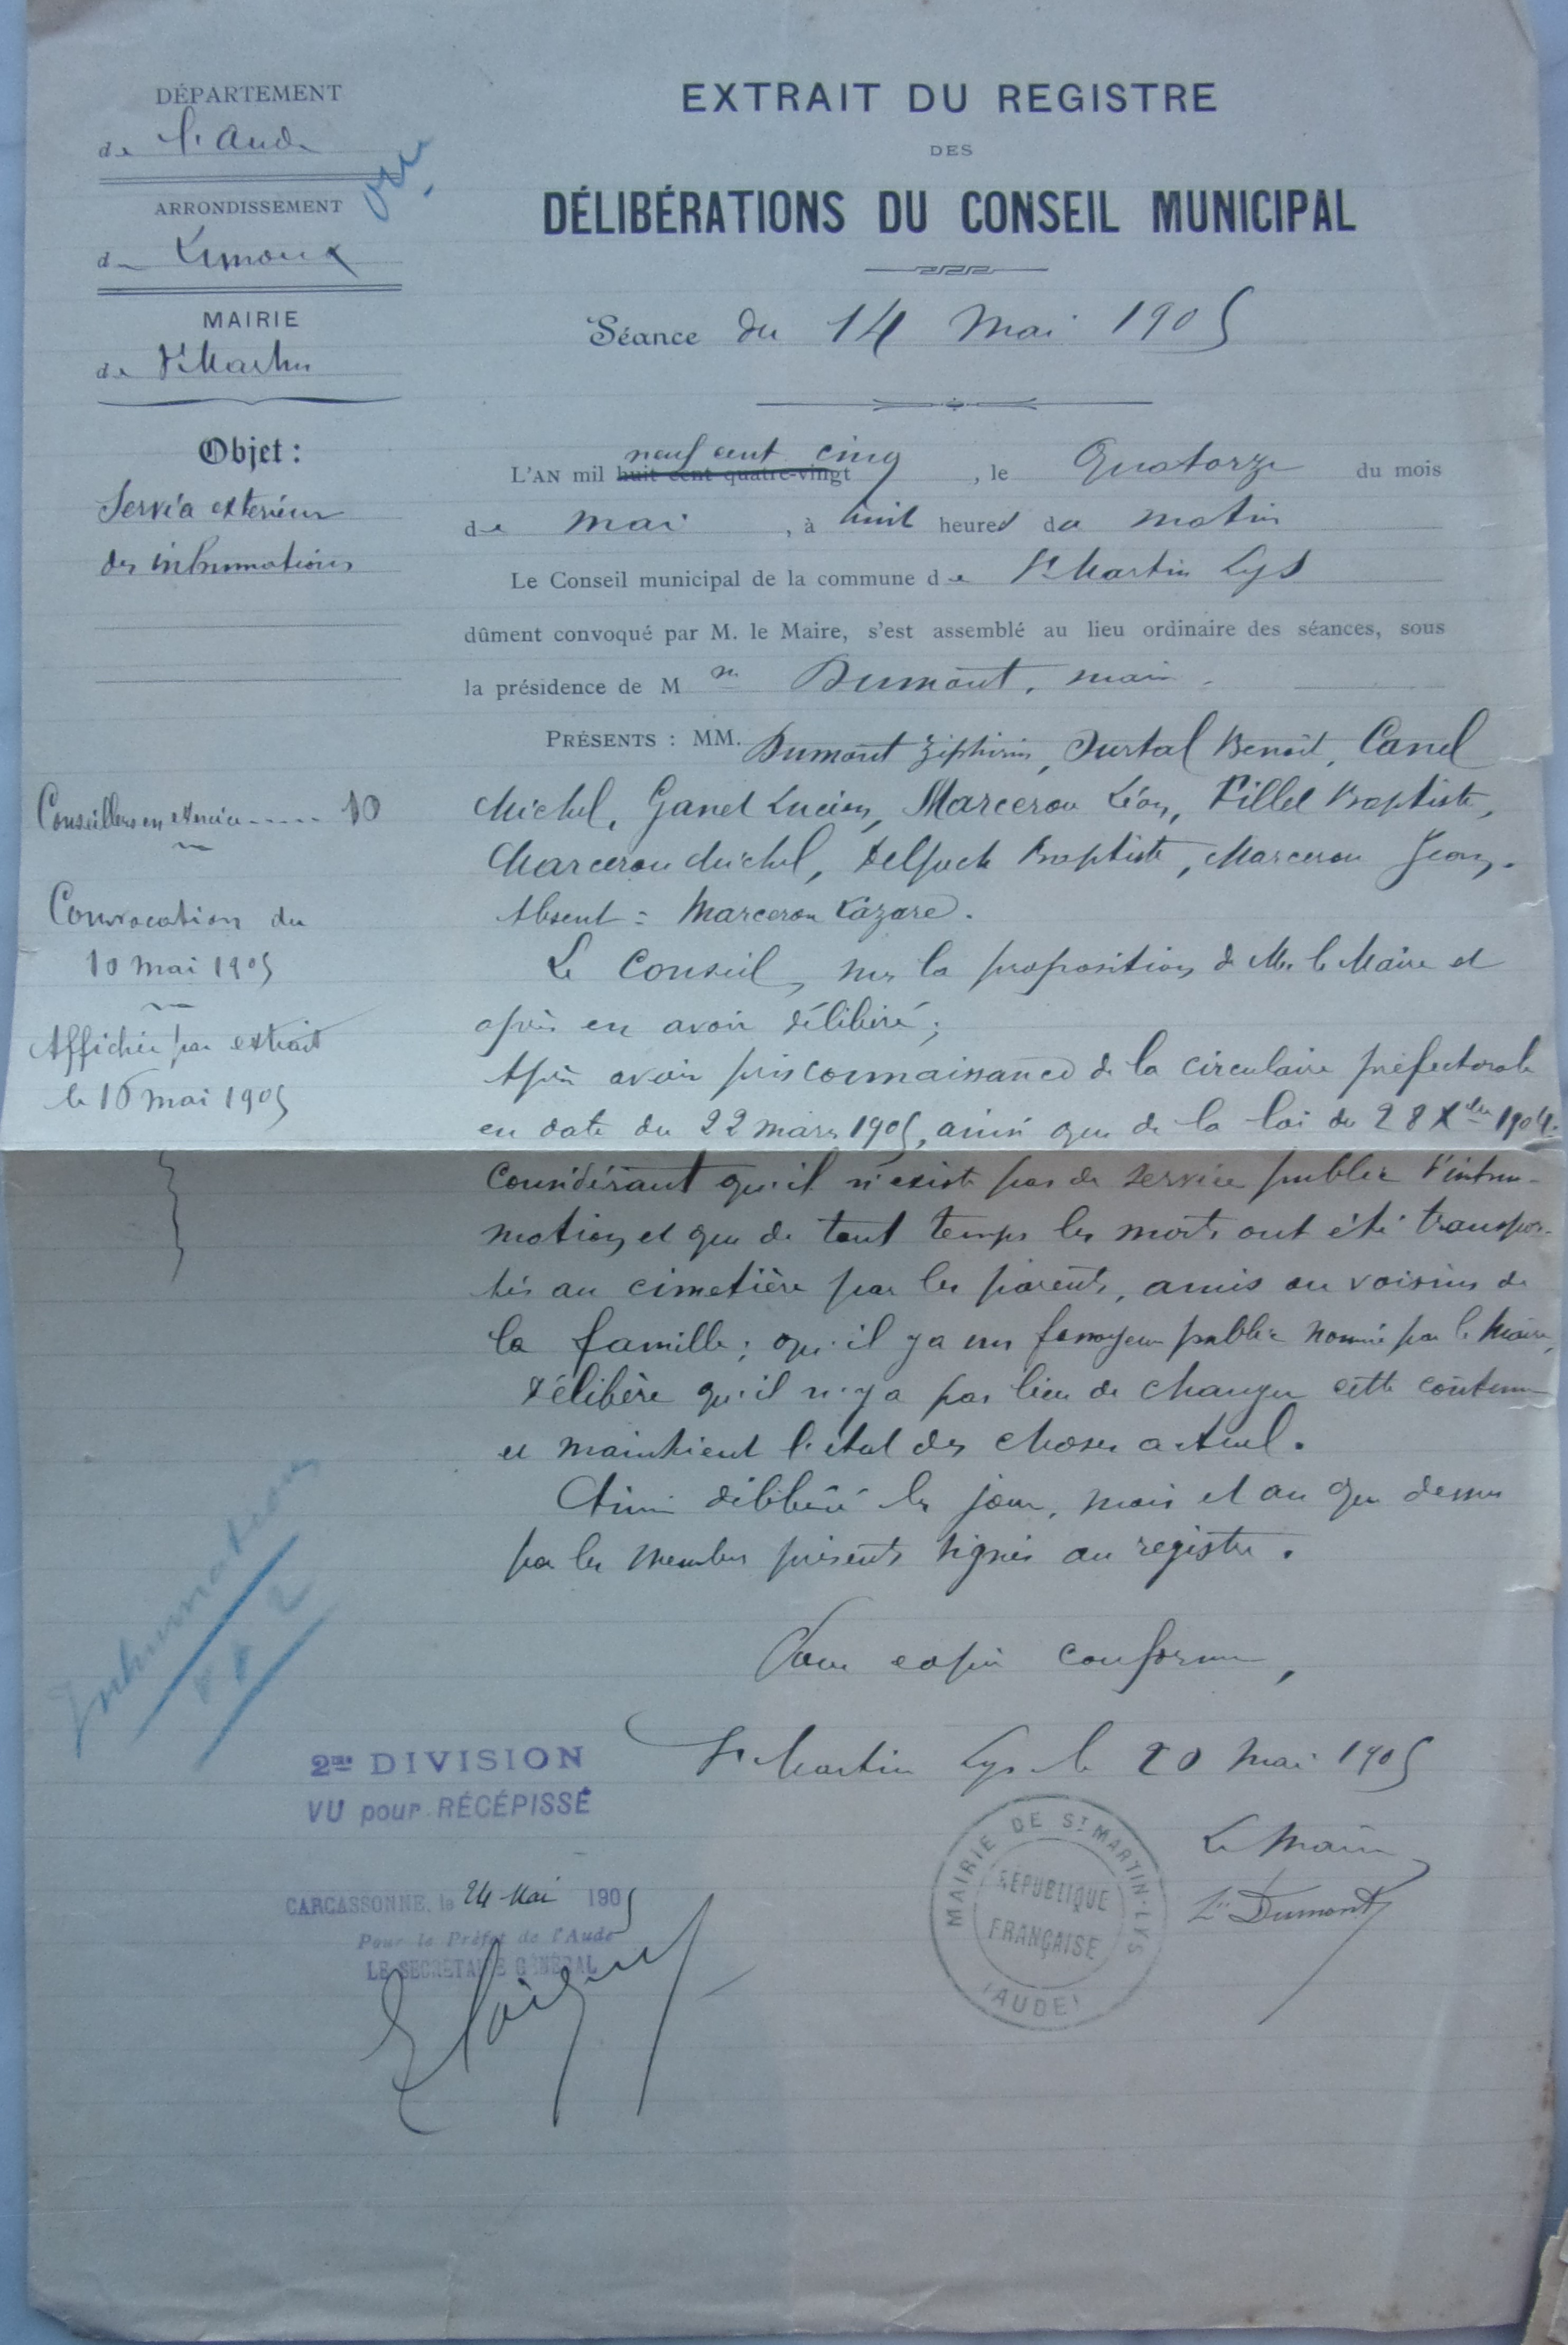 DÉPARTEMENT
de l'Aude
ARRONDISSEMENT
de Limoux
MAIRIE
de St Martin
Objet :
Service extérieur
des inhumations
Conseillers en exercice ..... 10
Convocation du
10 mai 1905
Affichée par extrait
le 16 mai 1905
EXTRAIT DU REGISTRE
DES
DÉLIBÉRATIONS DU CONSEIL MUNICIPAL
Séance du 14 Mai 1905
neuf cent cinq
L'AN mil huit cent quatre-vingt , le Quatorze du mois
de mai , à huit heures du matin
Le Conseil municipal de la commune de St Martin Lys
dûment convoqué par M. le Maire, s'est assemblé au lieu ordinaire des séances, sous
la présidence de M Dumont, maire.
PRÉSENTS : MM. Dumont Zéphirin, Durtal Benoît, Canel
Michel, Ganel Lucien, Marcerou Léon, Pillel Baptiste,
Marcerou Michel, Delpech Baptiste, Marcerou Jean.
Absent : Marcerou Lazare.
Le Conseil, sur la proposition de Mr le Maire et
après en avoir délibéré ;
Après avoir pris connaissance de la circulaire préfectorale
en date du 22 mars 1905, ainsi que de la loi du 28 Xbre 1904.
Considérant qu'il n'existe pas de service public d'inhu-
mation et que de tout temps les morts ont été transpor-
tés au cimetière par les parents, amis ou voisins de
la famille ; qu'il y a un fossoyeur public nommé par le Maire,
Délibère qu'il n'y a pas lieu de changer cette coutume
et maintient l'état des choses actuel.
Ainsi délibéré les jour, mois et an que dessus
par les membres présents signés au registre.
Pour copie conforme,
St Martin Lys le 20 Mai 1905
Le Maire
Zin Dumont
MAIRIE DE ST MARTIN-LYS
RÉPUBLIQUE
FRANÇAISE
(AUDE)
Inhumations
2me DIVISION
VU pour RÉCÉPISSÉ
CARCASSONNE, le 24 Mai 1905
Pour le Préfet de l'Aude
LE SECRÉTAIRE GÉNÉRAL